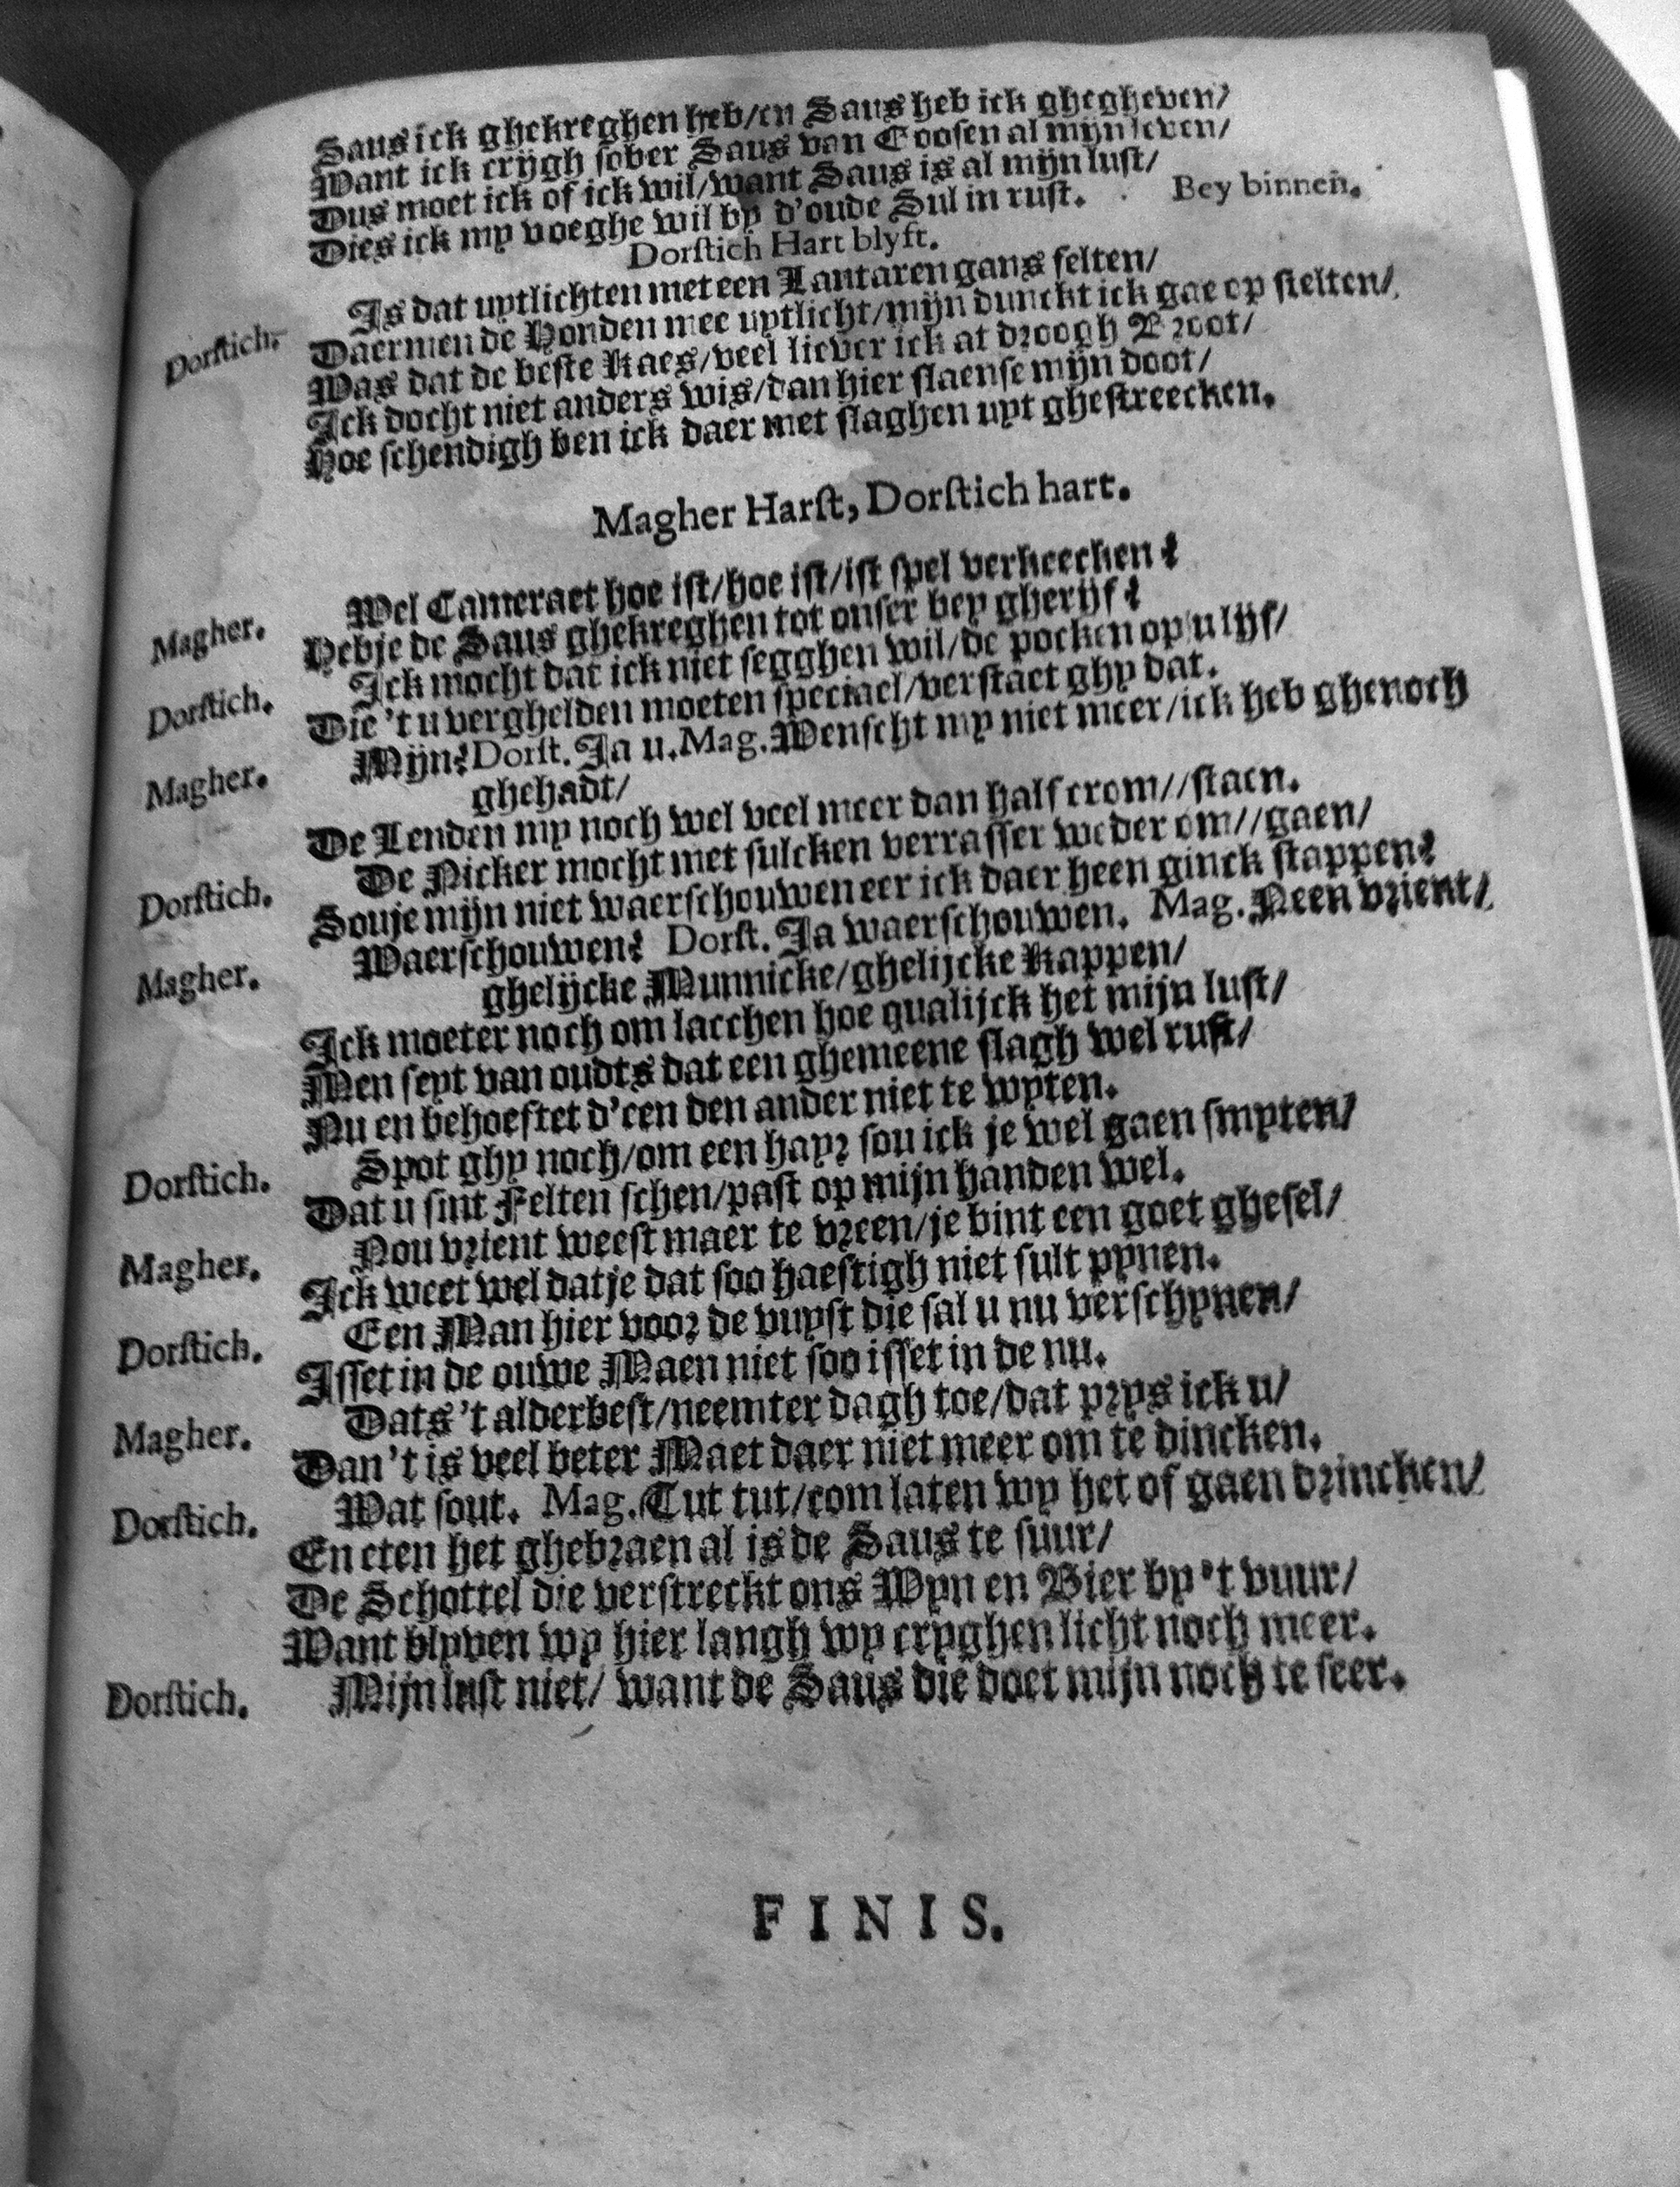 Saus ick ghekreghen heb/en Saus heb ick ghegheven/
Want ick crijgh sober Saus van Coosen al mijn leven/
Dus moet ick of ick wil/want Saus is al mijn lust/
Dies ick my voeghe wil by d'oude Sul in rust. Bey binnen.
Dorstich Hart blyft.
Dorstich. Is dat uytlichten met een Lantaren gans felten/
Daermen de Honden mee uytlicht/mijn dunckt ick gae op stelten/
Was dat de beste Kaes/veel liever ick at droogh Broot/
Ick docht niet anders wis/dan hier slaense mijn doot/
Hoe schendigh ben ick daer met slaghen uyt ghestreecken.
Magher Harst, Dorstich hart.
Magher. Wel Cameraet hoe ist/hoe ist/ist spel verkeecken?
Hebje de Saus ghekreghen tot onser bey gherijf?
Dorstich. Ick mocht dat ick niet segghen wil/de pocken op u lijf/
Die 't u verghelden moeten speciael/verstaet ghy dat.
Magher. Mijn? Dorst. Ja u. Mag. Wenscht my niet meer/ick heb ghenoch
ghehadt/
De Lenden my noch wel veel meer dan half crom//staen.
Dorstich. De Nicker mocht met sulcken verrasser weder om//gaen/
Souje mijn niet waerschouwen eer ick daer heen ginck stappen?
Magher. Waerschouwen? Dorst. Ja waerschouwen. Mag. Neen vrient/
ghelijcke Munnicke/ghelijcke Kappen/
Ick moeter noch om lacchen hoe qualijck het mijn lust/
Men seyt van oudts dat een ghemeene slagh wel rust/
Nu en behoeftet d'een den ander niet te wyten.
Dorstich. Spot ghy noch/om een hayr sou ick je wel gaen smyten/
Dat u sint Felten schen/past op mijn handen wel.
Magher. Nou vrient weest maer te vreen/je bint een goet ghesel/
Ick weet wel datje dat soo haestigh niet sult pynen.
Dorstich. Een Man hier voor de vuyst die sal u nu verschynen/
Isset in de ouwe Maen niet soo isset in de nu.
Magher. Dats 't alderbest/neemter dagh toe/dat prys ick u/
Dan 't is veel beter Maet daer niet meer om te dincken.
Dorstich. Wat sout. Mag. Tut tut/com laten wy het of gaen drincken/
En eten het ghebraen al is de Saus te suur/
De Schottel die verstreckt ons Wyn en Bier by 't vuur/
Want blyven wy hier langh wy cryghen licht noch meer.
Dorstich. Mijn lust niet/ want de Saus die doet mijn noch te seer.
FINIS.